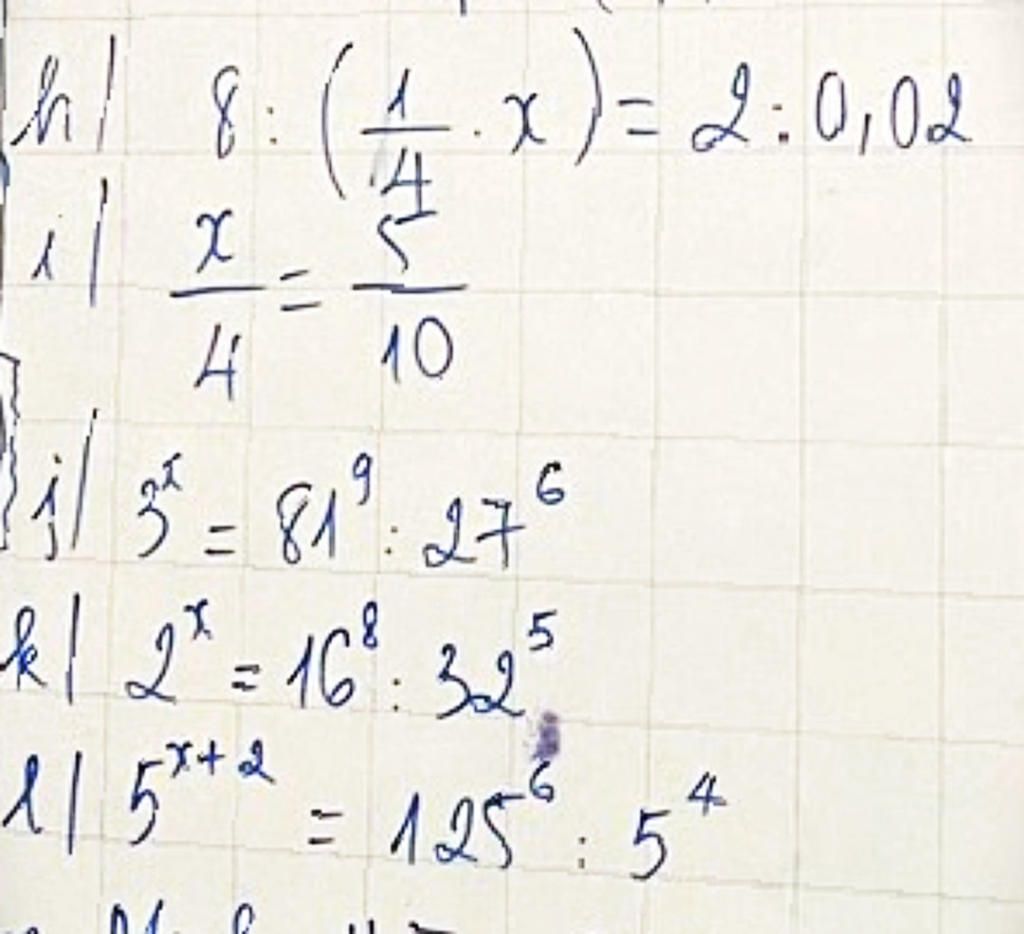 h/ 8 : (1/4 . x) = 2 : 0,02
i/ x/4 = 5/10
j/ 3^x = 81^9 : 27^6
k/ 2^x = 16^8 : 32^5
l/ 5^{x+2} = 125^6 : 5^4